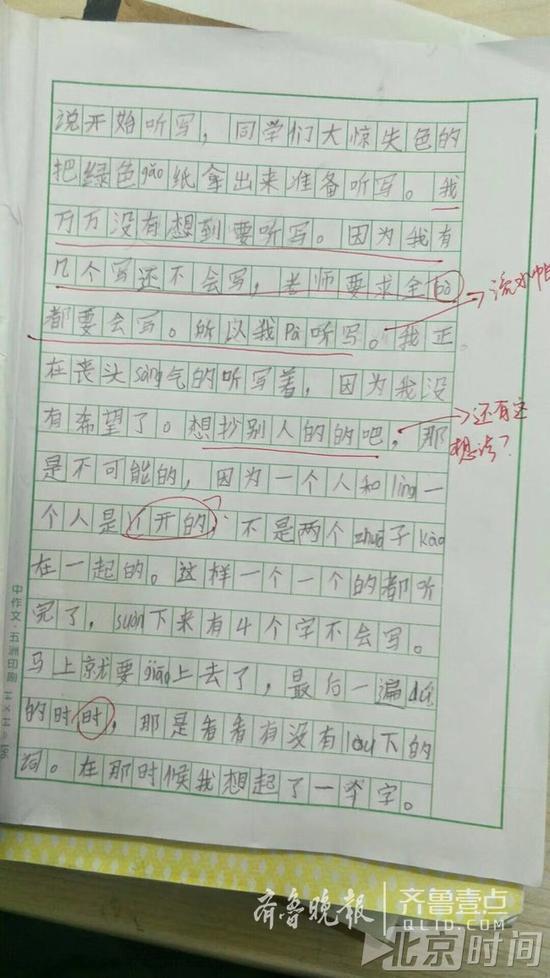 说开始听写，同学们大惊失色的
把绿色gǎo纸拿出来准备听写。我
万万没有想到要听写。因为我有
几个写还不会写，老师要求全bù
都要会写。所以我Pà听写。我正
在丧头sàng气的听写着，因为我没
有希望了。想抄别人的的吧，那
是不可能的，因为一个人和lìng一
个人是丫开的，不是两个zhuō子kào
在一起的。这样一个一个的都听
完了，suàn下来有4个字不会写。
马上就要jiāo上去了，最后一遍dú
的时时，那是看看有没有lòu下的
词。在那时候我想起了一个字。
还有这
想法？
中作文·五洲印刷
齐鲁晚报
齐鲁壹点
QLID.COM
北京时间